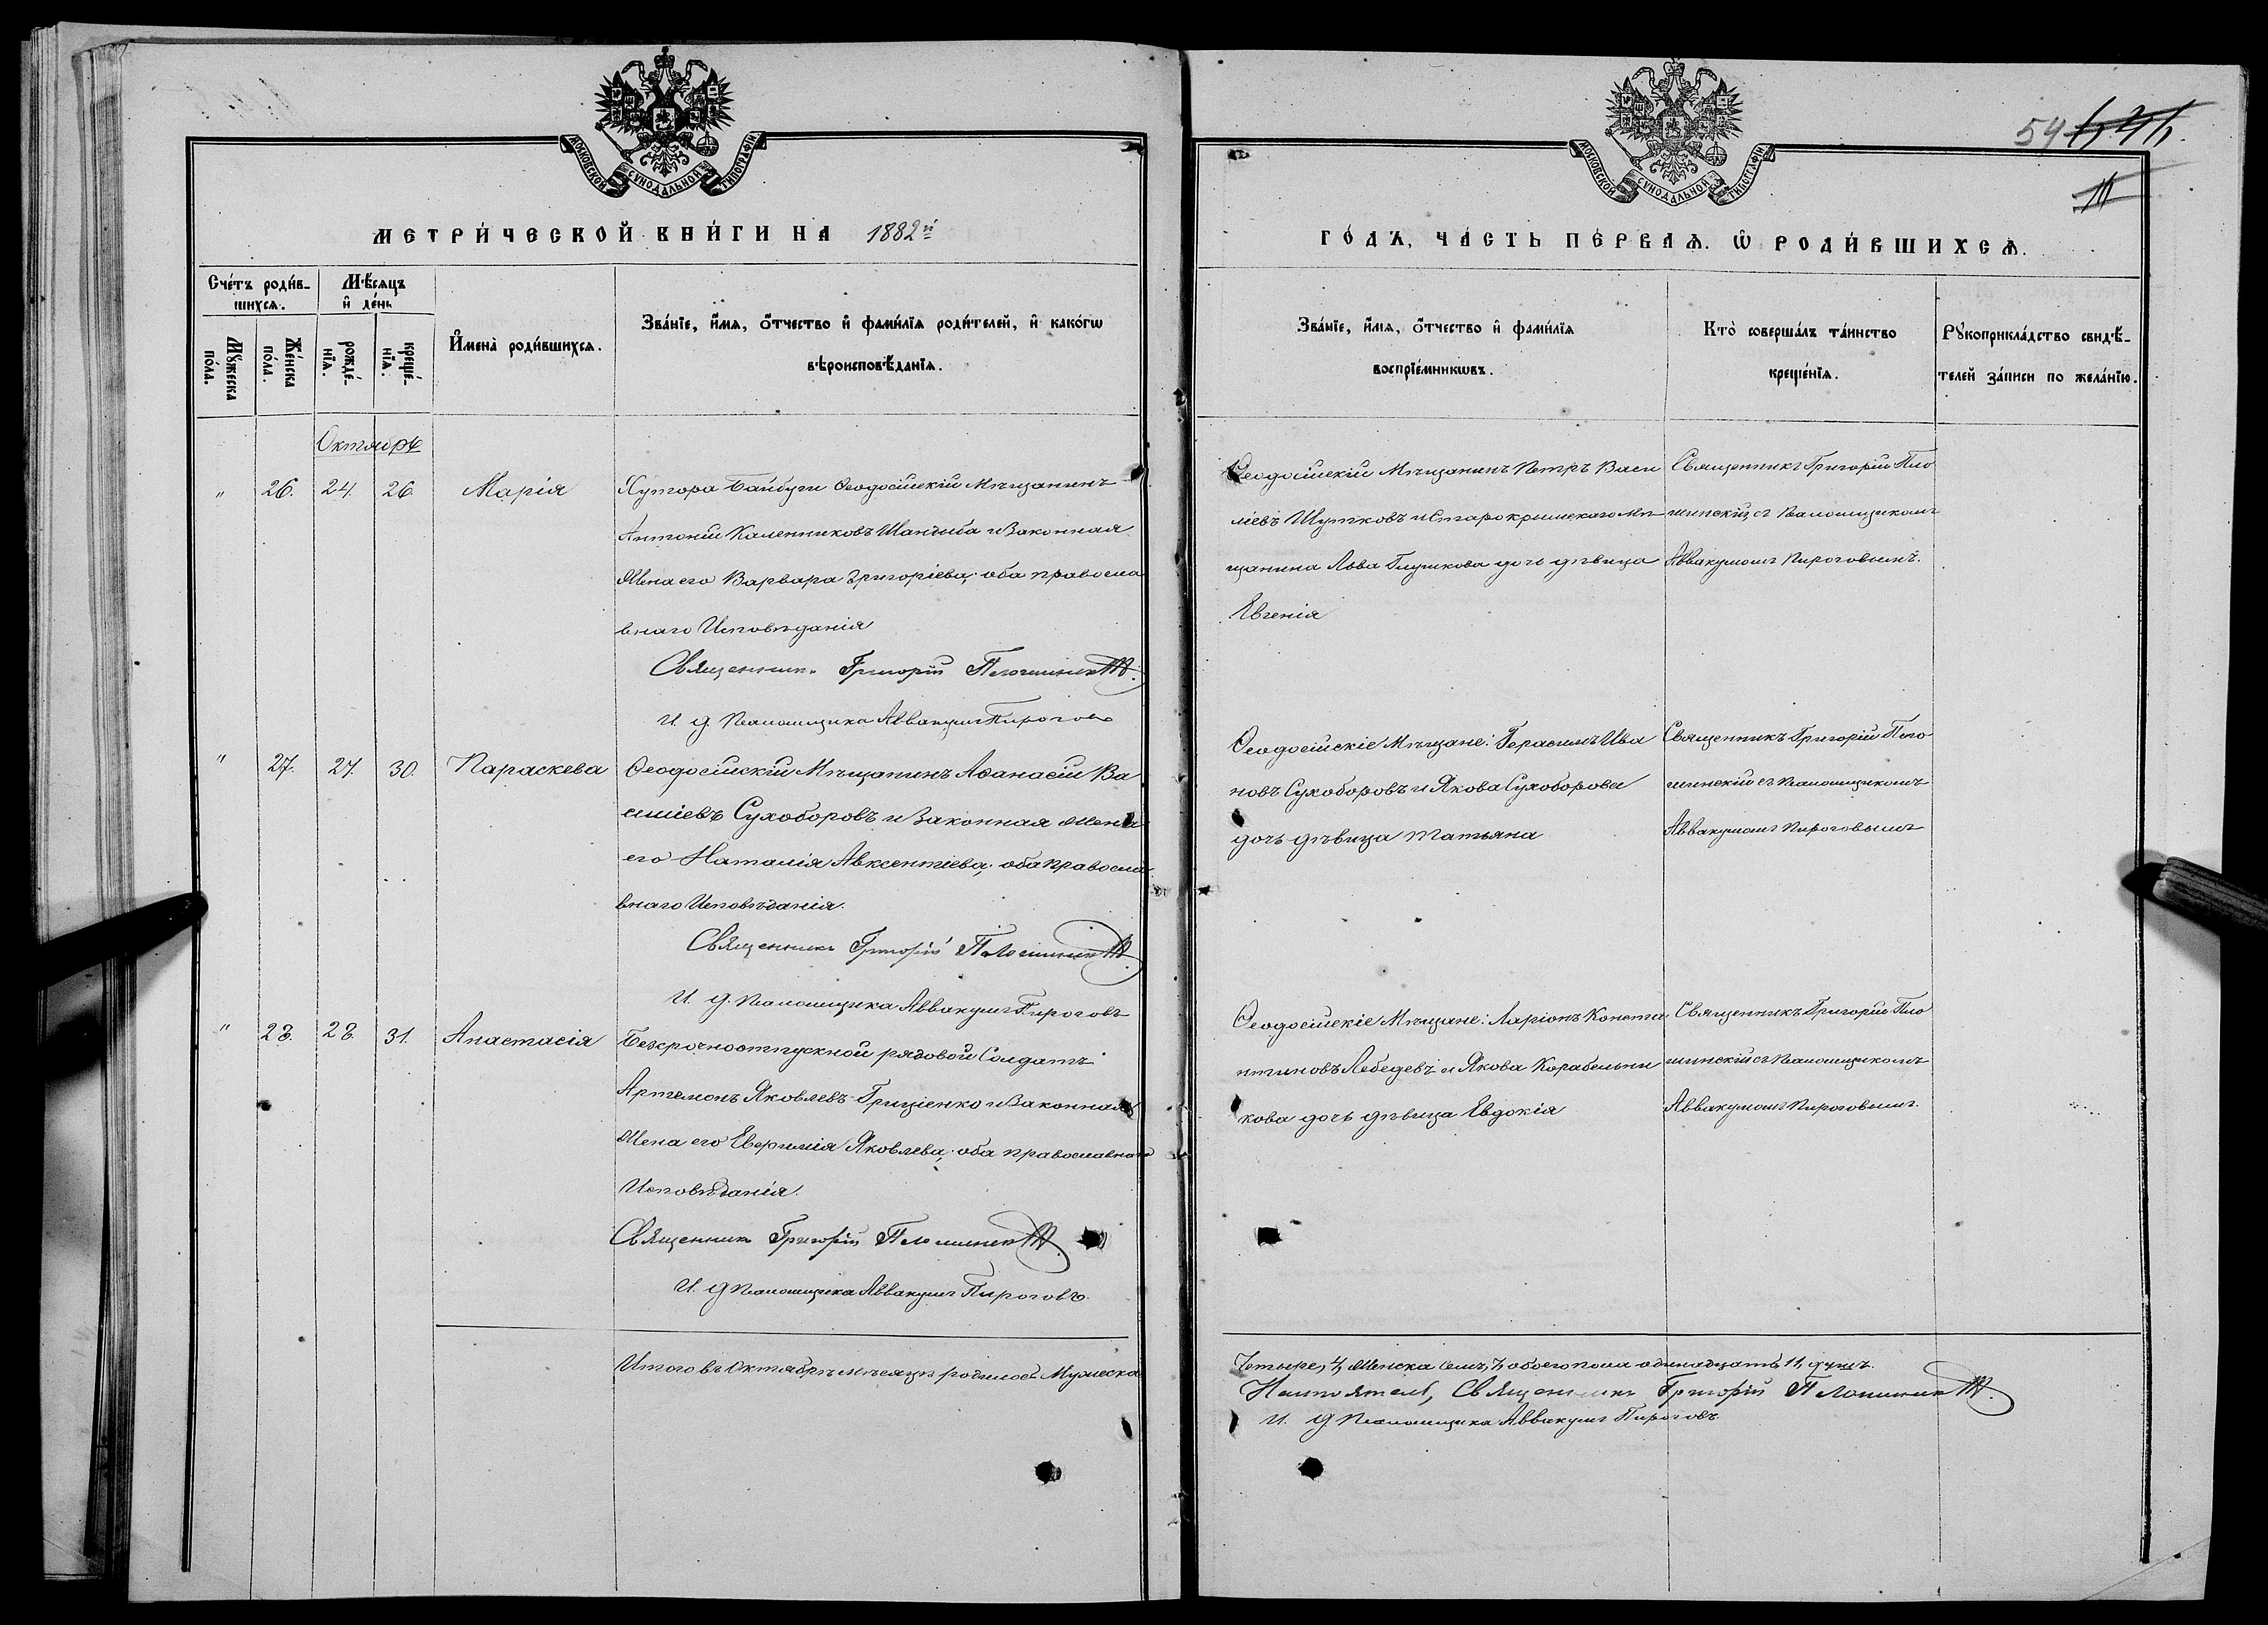 МОСКОВСКОЙ СѴНОДАЛЬНОЙ ТИПОГРАФІИ
МЕТРИ́ЧЕСКОЙ КНИ́ГИ НА 1882й
Сче́тъ роди́в-
шихся.
Мѣ́сяцъ
и҆ де́нь
Мꙋ́жеска
по́ла.
Же́нска
по́ла.
рожде́-
нїѧ.
креще́-
нїѧ.
И҆мена̀ роди́вшихсѧ.
Зва́нїе, и҆́мѧ, ѻ҆́тчество и҆ фами́лїѧ роди́телей, и҆ како́гѡ
вѣроисповѣ́данїѧ.
Октябрь
" 26. 24. 26. Марія
Хутора Байбуги Ѳеодосійскій Мѣщанинъ
Антоній Каленниковъ Шандыба и Законная
Жена его Варвара Григоріева; оба правосла
внаго Исповѣданія
Священникъ Григорій
И. д. Псаломщика Аввакумъ Пироговъ
" 27. 27. 30. Параскева
Ѳеодосійскій Мѣщанинъ Аѳанасій Ва
силіевъ Сухоборовъ и Законная Жена
его Наталія Авксентіева; оба правосла
внаго Исповѣданія.
Священникъ Григорій
И. д. Псаломщика Аввакумъ Пироговъ
" 28. 28. 31. Анастасія
Безсрочноотпускной рядовой Солдатъ
Артемонъ Яковлевъ Гриценко и Законная
Жена его Евфимія Яковлева; оба православнаго
Исповѣданія.
Священникъ Григорій
И. д Псаломщика Аввакумъ Пироговъ.
Итого въ Октябрѣ мѣсяцѣ родилось Мужеска
54
МОСКОВСКОЙ СѴНОДАЛЬНОЙ ТИПОГРАФІИ
ГО́ДЪ, ЧА́СТЬ ПЕ́РВАѦ. Ѽ РОДИ́ВШИХСѦ.
Зва́нїе, и҆́мѧ, ѻ҆́тчество и҆ фами́лїѧ
воспрїе́мникѡвъ.
Кто̀ соверша́лъ та́инство
креще́нїѧ.
Рꙋкоприкла́дство свидѣ́-
телей за́писи по жела́нїю.
Ѳеодосійскій Мѣщанинъ Петръ Васи
ліевъ Шутковъ и Старокрымскаго Мѣ
щанина Льва Глушкова дочь дѣвица
Евгенія
Священникъ Григорій
съ Псаломщикомъ
Аввакумомъ Пироговымъ.
Ѳеодосійскіе Мѣщане: Герасимъ Ива
новъ Сухоборовъ и Якова Сухоборова
дочь дѣвица Татьяна
Священникъ Григорій
съ Псаломщикомъ
Аввакумомъ Пироговымъ
Ѳеодосійскіе Мѣщане: Ларіонъ Конста
нтиновъ Лебедевъ и Якова Корабельни
кова дочь дѣвица Евдокія
Священникъ Григорій
съ Псаломщикомъ
Аввакумомъ Пироговымъ.
Четыре, 4, Женска семь, 7, обоего пола одинадцать 11, душъ.
Настоятель, Священникъ Григорій
И. д Псаломщика Аввакумъ Пироговъ